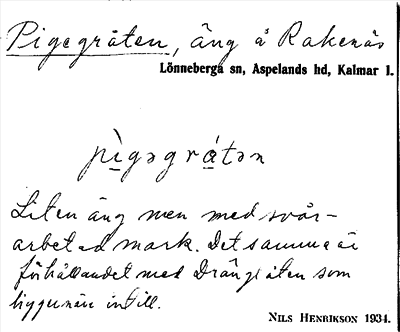 Pigegråten, äng å Rakenäs
Lönneberga sn, Aspelands hd, Kalmar l.
pìgəgrátən
Liten äng men med svår-
arbetad mark. Det samma är
förhållandet med Drängåten som
ligger när intill.
NILS HENRIKSON 1934.